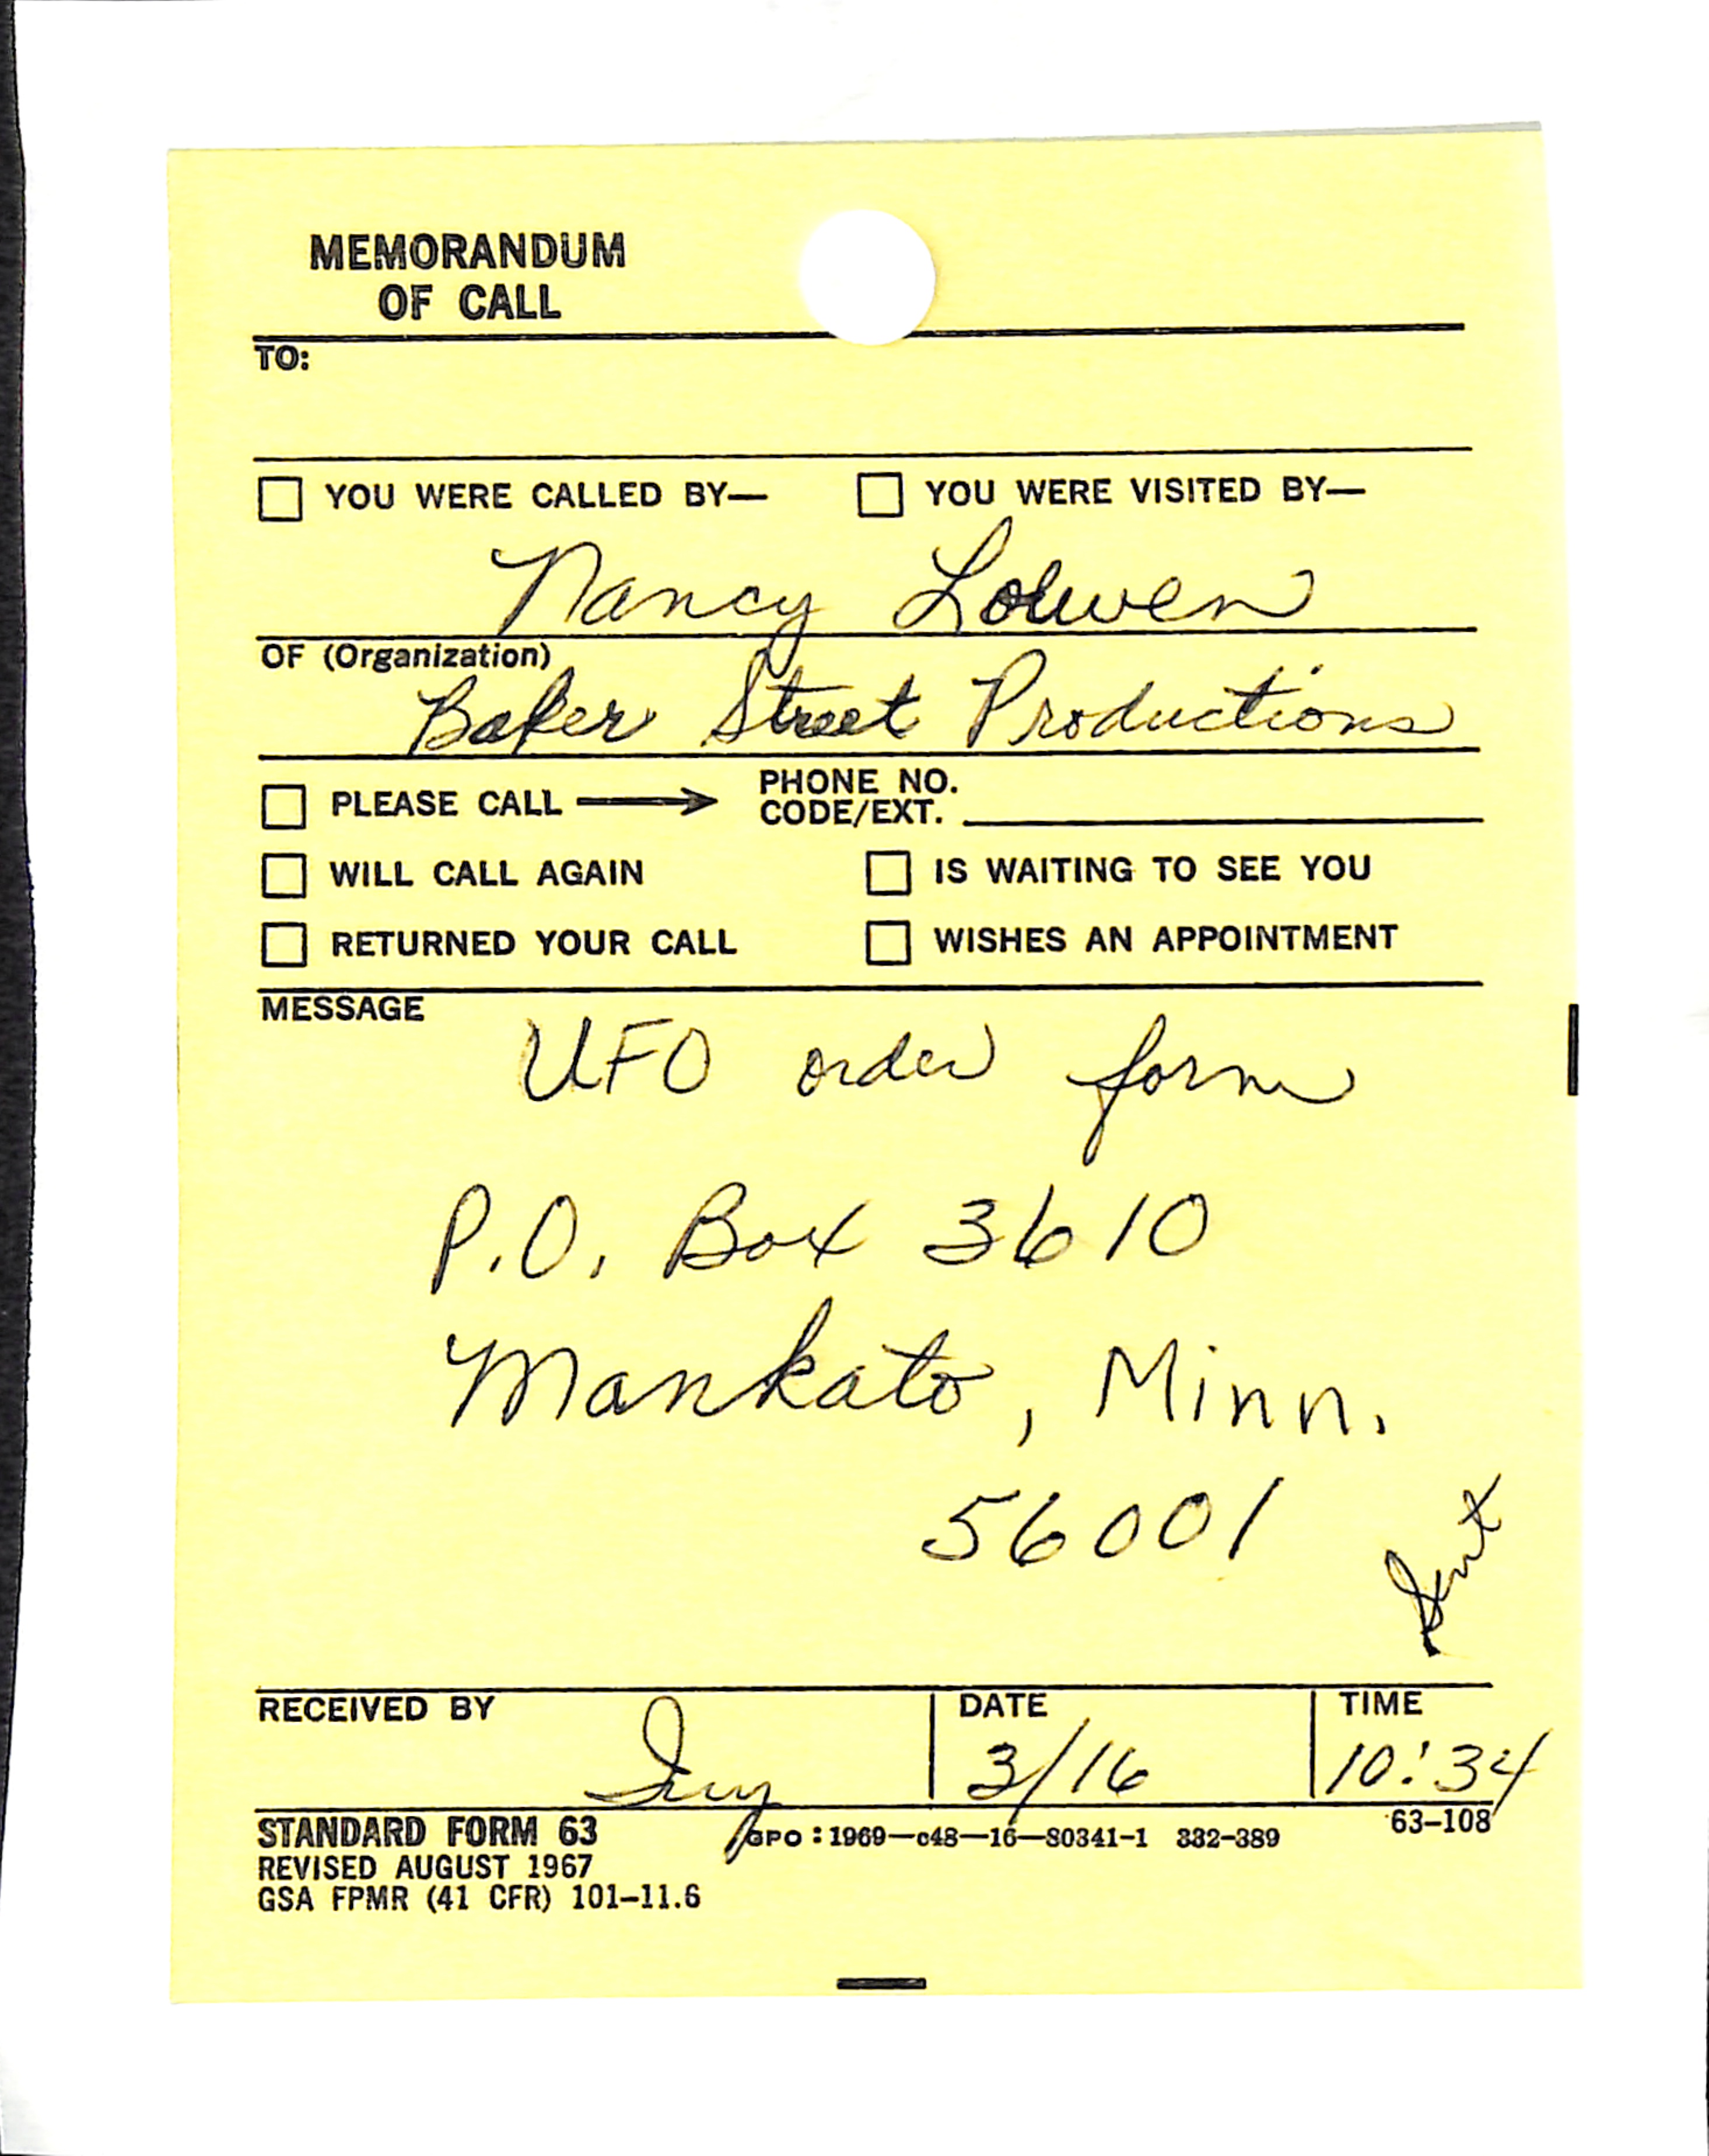 MEMORANDUM
OF CALL
TO:
YOU WERE CALLED BY— YOU WERE VISITED BY—
Nancy Loewen
OF (Organization)
Baker Street Productions
PLEASE CALL → PHONE NO.
CODE/EXT.
WILL CALL AGAIN IS WAITING TO SEE YOU
RETURNED YOUR CALL WISHES AN APPOINTMENT
MESSAGE
UFO order form
P.O. Box 3610
Mankato, Minn.
56001
Sent
RECEIVED BY DATE TIME
3/16 10:34
STANDARD FORM 63 GPO : 1969—c48—16—80341-1 332-389 63-108
REVISED AUGUST 1967
GSA FPMR (41 CFR) 101-11.6